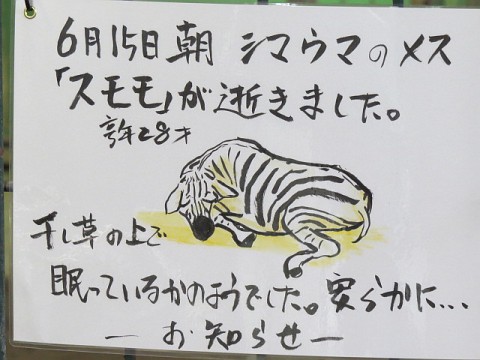 6月15日朝 シマウマのメス
「スモモ」が逝きました。
享年28才
干し草の上で
眠っているかのようでした。安らかに...
ーお知らせー